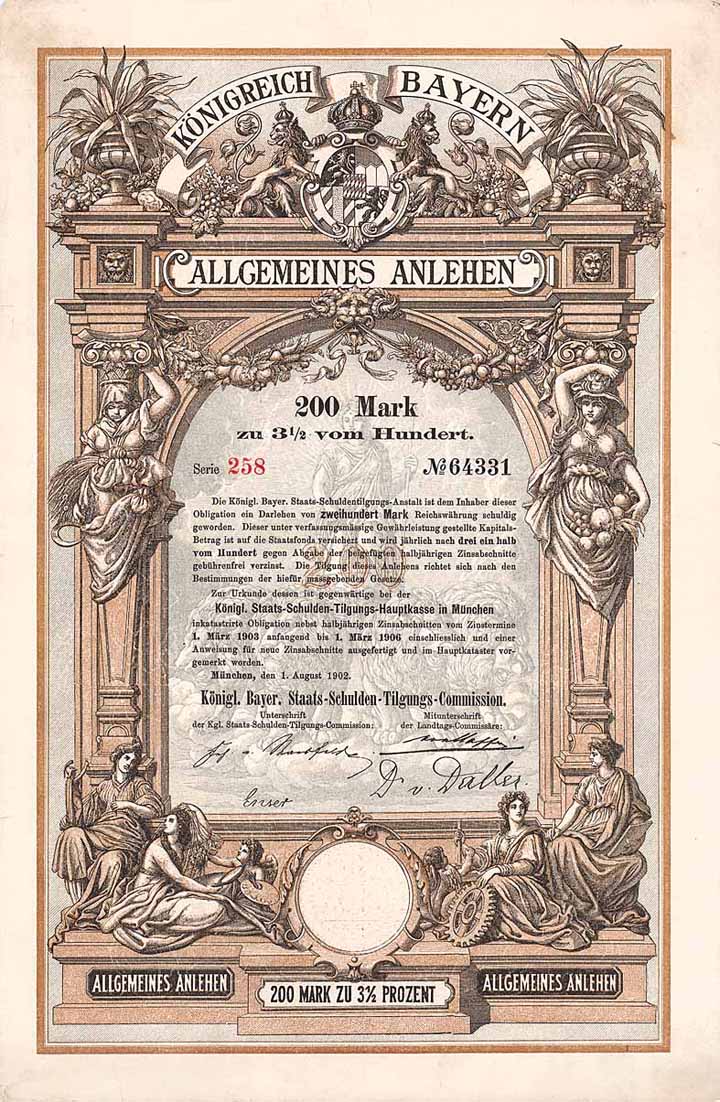 KÖNIGREICH BAYERN
ALLGEMEINES ANLEHEN
200 Mark
zu 3½ vom Hundert.
Serie 258 № 64331
Die Königl. Bayer. Staats-Schuldentilgungs-Anstalt ist dem Inhaber dieser
Obligation ein Darlehen von zweihundert Mark Reichswährung schuldig
geworden. Dieser unter verfassungsmässige Gewährleistung gestellte Kapitals-
Betrag ist auf die Staatsfonds versichert und wird jährlich nach drei ein halb
vom Hundert gegen Abgabe der beigefügten halbjährigen Zinsabschnitte
gebührenfrei verzinst. Die Tilgung dieses Anlehens richtet sich nach den
Bestimmungen der hiefür massgebenden Gesetze.
Zur Urkunde dessen ist gegenwärtige bei der
Königl. Staats-Schulden-Tilgungs-Hauptkasse in München
inkatastrirte Obligation nebst halbjährigen Zinsabschnitten vom Zinstermine
1. März 1903 anfangend bis 1. März 1906 einschliesslich und einer
Anweisung für neue Zinsabschnitte ausgefertigt und im Hauptkataster vor-
gemerkt worden.
München, den 1. August 1902.
Königl. Bayer. Staats-Schulden-Tilgungs-Commission.
Unterschrift Mitunterschrift
der Kgl. Staats-Schulden-Tilgungs-Commission: der Landtags-Commissäre:
Dr v. Daller.
200
ALLGEMEINES ANLEHEN
200 MARK ZU 3½ PROZENT
ALLGEMEINES ANLEHEN